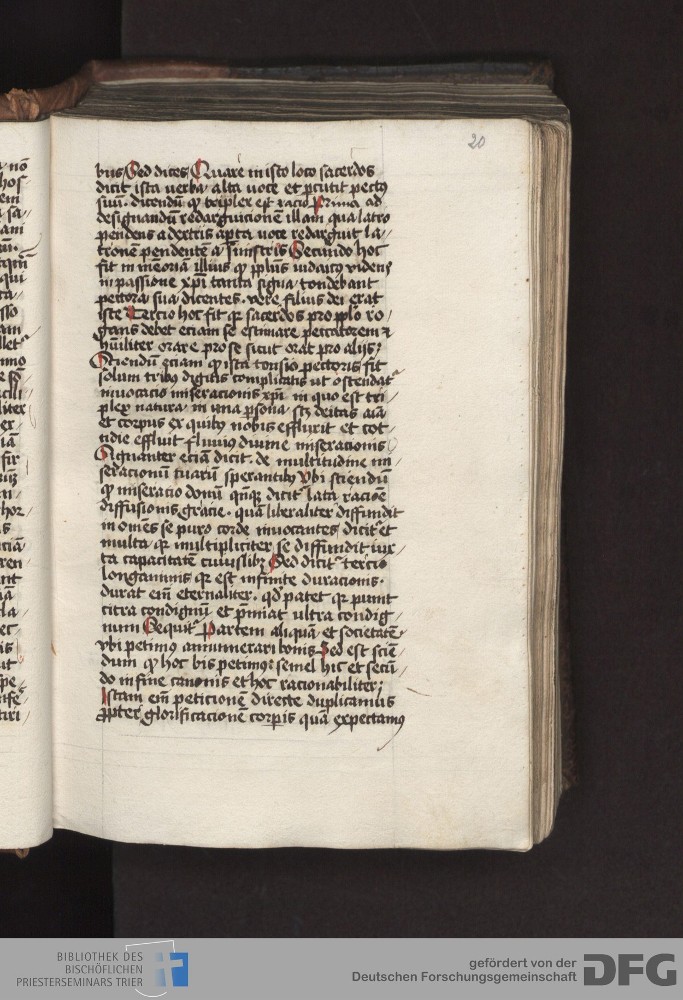 20
bus Sed dices Quare in isto loco sacerdos
dicit ista verba alta voce et ꝑcutit pectꝯ
suū. dicendū ꝙ triplex est racio Prima ad
designandū redarguicionē illam qua latro
pendens a dextris aꝑta voce redarguit la-
tronē pendentē a sinistris Secundo hoc
fit in memoriā illius ꝙ ppl̄us iudaicꝯ videns
in passione xp̄i tanta signa tondebant
pectora sua dicentes. vere filius dei erat
iste Tercio hoc fit qꝛ sacerdos pro pplō ro-
gans debet eciam se estimare peccatorem ⁊
hūiliter orare pro se sicut orat pro alijs;
Sciendū eciam ꝙ ista tonsio pectoris fit
solum tribꝯ digitis complicatis ut ostendatᷣ
inuocacio miseracionis xp̄i in quo est tri-
plex natura in una ꝑsona scꝫ deitas aīa
et corpus ex quibꝯ nobis effluxit et cot-
tidie effluit fluuius diuine miseracionis
Signanter eciā dicit. de multitudine mi-
seracionū tuarū sperantibꝯ Vbi sciendū
ꝙ miseracio donū qn̄qꝫ dicitᷣ lata racōe
diffusionis gracie. quā liberaliter diffundit
in omēs se puro corde inuocantes dicitᷣ et
multa qꝛ multipliciter se diffundit iux-
ta capacitatē cuiuslibꝫ Sed dicitᷣ tercio
longanimis qꝛ est infinite duracionis.
durat em̄ eternaliter. qd̓ patet qꝛ punit
citra condignū et p̄miat ultra condig-
num Sequitᷣ Partem aliquā et societatē
vbi petimꝯ annumerari bonis Sed est sciē-
dum ꝙ hoc bis petimꝯ semel hic et secū-
do in fine canonis et hoc racionabiliter;
Istam em̄ peticionem directe duplicamus
ꝓpter glorificacionē corꝑis quā expectamꝯ
BIBLIOTHEK DES
BISCHÖFLICHEN
PRIESTERSEMINARS TRIER
gefördert von der
Deutschen Forschungsgemeinschaft
DFG